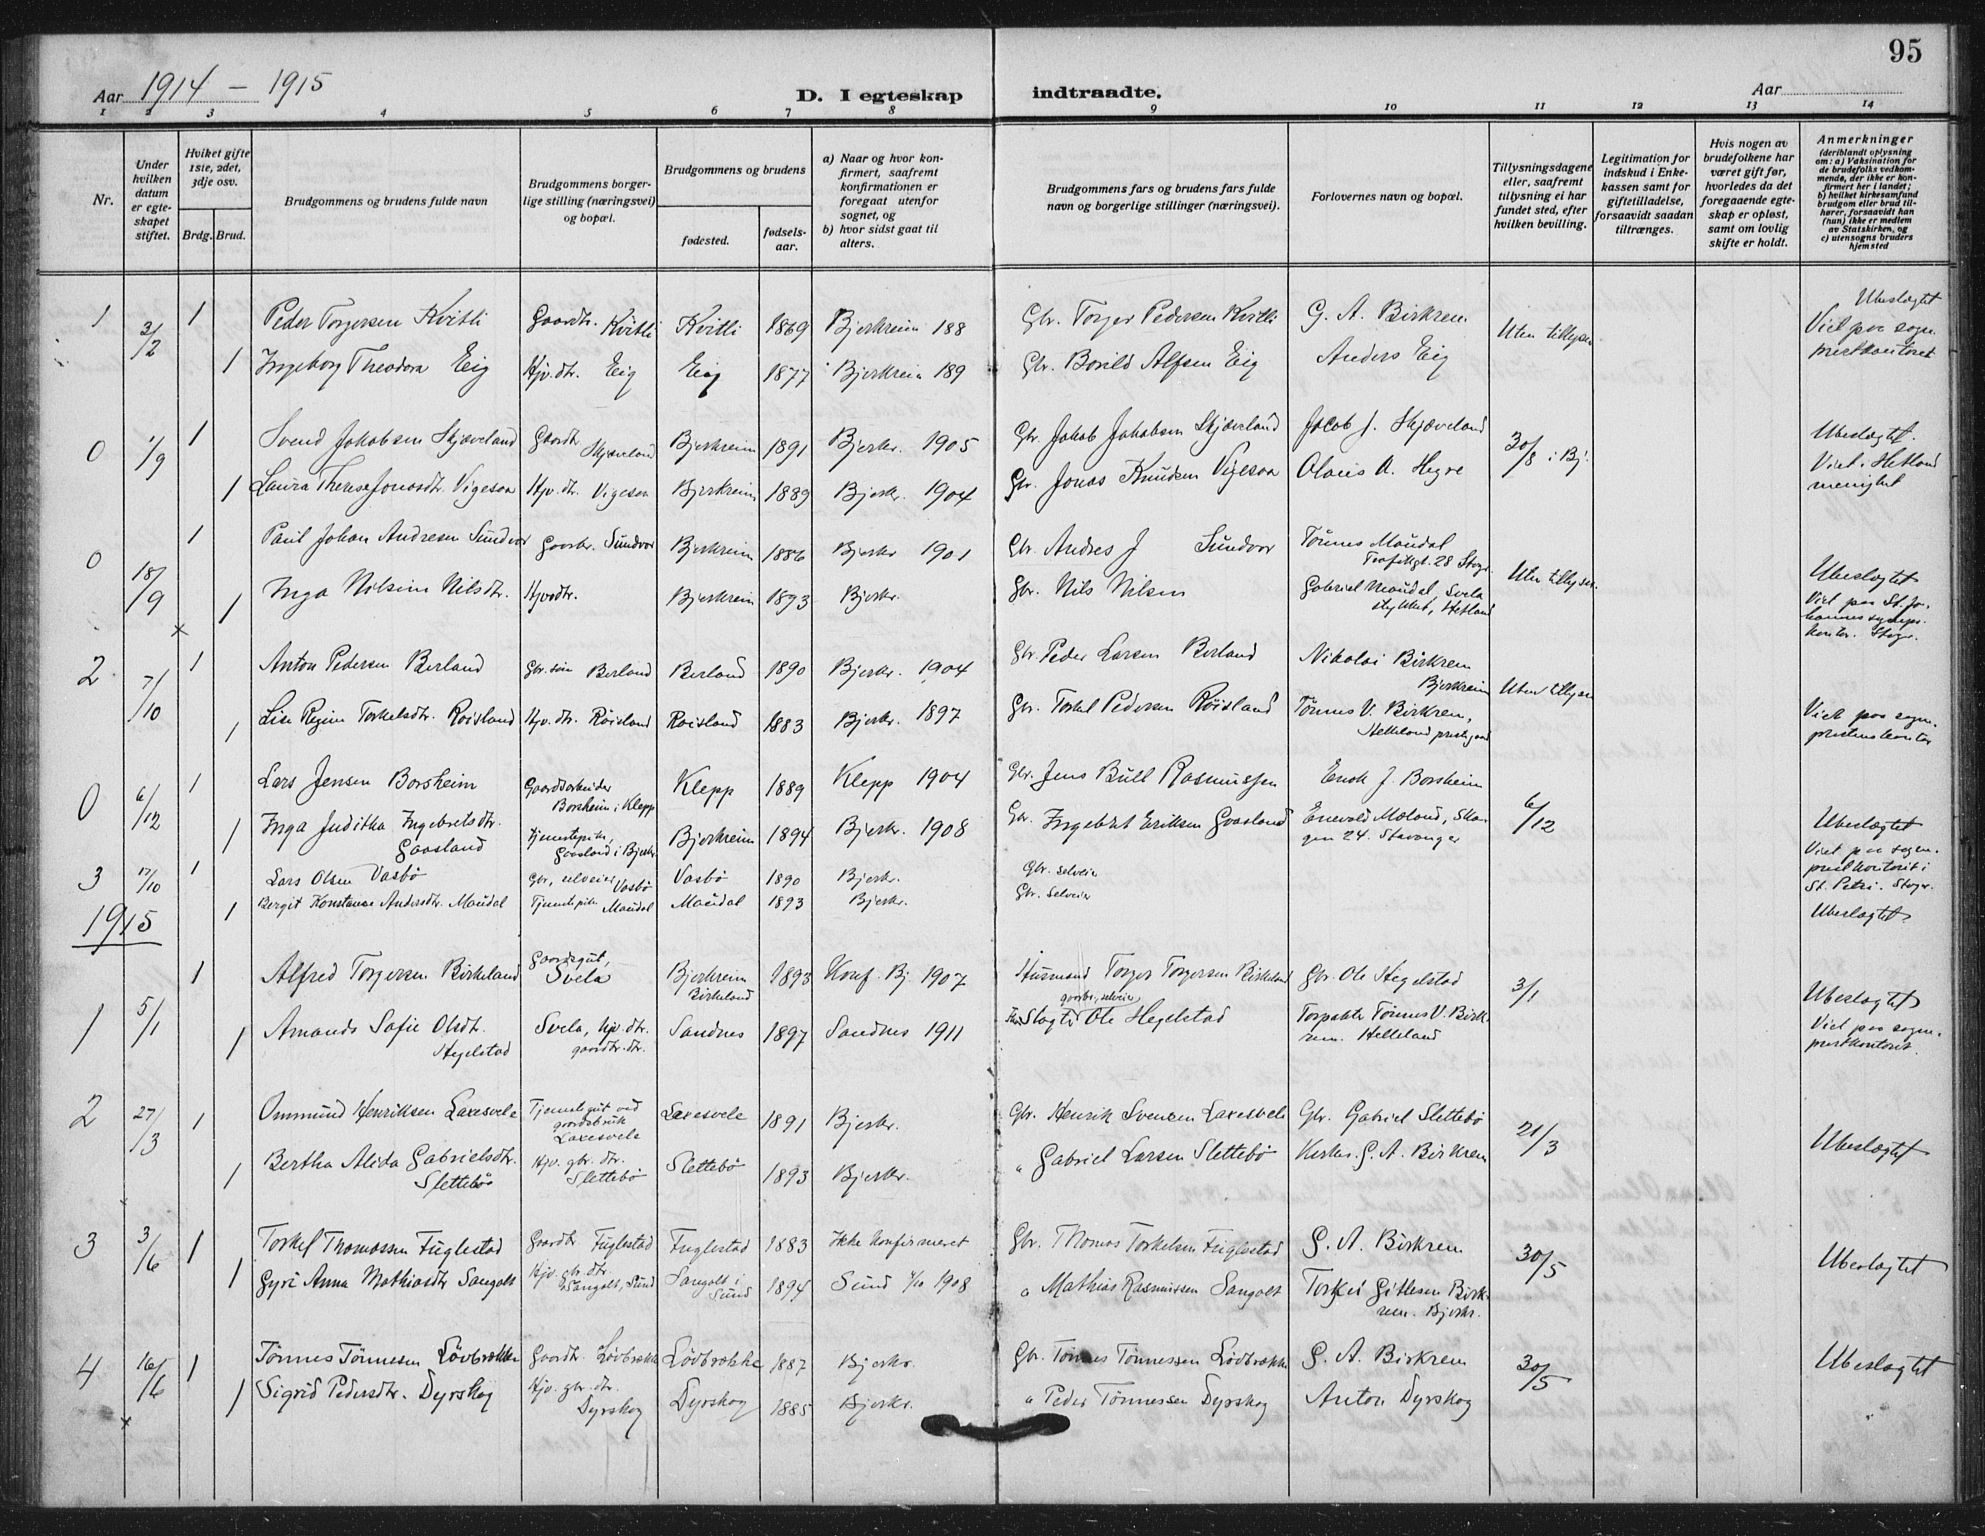 95
Aar 1914 – 1915
D. I egteskap indtraadte.
Aar
1 2 3 4 5 6 7 8 9 10 11 12 13 14
Nr.
Under hvilken datum er egteskapet stiftet.
Hvilket gifte 1ste, 2det, 3dje osv.
Brdg. Brud.
Brudgommens og brudens fulde navn
Brudgommens borgerlige stilling (næringsvei) og bopæl.
Brudgommens og brudens
fødested.
fødselsaar.
a) Naar og hvor konfirmert, saafremt konfirmationen er foregaat utenfor sognet, og
b) hvor sidst gaat til alters.
Brudgommens fars og brudens fars fulde navn og borgerlige stillinger (næringsvei).
Forlovernes navn og bopæl.
Tillysningsdagene eller, saafremt tillysning ei har fundet sted, efter hvilken bevilling.
Legitimation for indskud i Enkekassen samt for giftetilladelse, forsaavidt saadan tiltrænges.
Hvis nogen av brudefolkene har været gift før, hvorledes da det foregaaende egteskap er opløst, samt om lovlig skifte er holdt.
Anmerkninger (deriblandt oplysning om: a) Vaksination for de brudefolks vedkommende, der ikke er konfirmert her i landet; b) hvilket kirkesamfund brudgom eller brud tilhører, forsaavidt han (hun) ikke er medlem av Statskirken, og c) utensogns bruders hjemsted
1 3/2 1 Peder Torgersen Kvitli Gaardbr. Kvitli Kvitli 1869 Bjerkreim 188 Gbr. Torger Pedersen Kvitli G. A. Birkrem Uten tillysn. Ubeslegtet Viet paa sogneprestkontoret
1 Ingeborg Theodora Eig Hjv. dtr. Eig Eig 1877 Bjerkreim 189 Gbr. Borild Alfsen Eig Anders Eig
0 1/9 1 Svend Jakobsen Skjæveland Gaardbr Skjæveland Bjerkreim 1891 Bjerkr. 1905 Gbr. Jakob Jakobsen Skjæveland Jacob J. Skjæveland 30/8 i Bj. Ubeslegtet. Viet i Hetland menighet
1 Laura Therese Jonasdtr. Vigesaa Hjv. dtr. Vigesaa Bjerkreim 1889 Bjerkr. 1904 Gbr. Jonas Knudsen Vigesaa Olaus A. Hegre
0 18/9 1 Paul Johan Andresen Sundvor Gaardbr. Sundvor Bjerkreim 1886 Bjerkr 1901 Gbr. Andres J Sundvor Tönnes Maudal 28 Stvgr. Uten tillysn. Ubeslegtet Viet paa St. Johannes sogneps. kontor. Stvgr.
1 Inga Nilsine Nilsdtr. Hjvdtr. Bjerkreim 1893 Bjerkr. Gbr. Nils Nilsen Gabriel Maudal, Svela stykket, Hetland
2 7/10 1 Anton Pedersen Berland Gbr. søn Berland Berland 1890 Bjerkr. 1904 Gbr Peder Larsen Berland Nikolai Birkrem Bjerkreim Uten tillysn Viet paa sogneprestens kontor
1 Lise Regine Torkelsdtr. Röisland Hjv. dtr. Röisland Röisland 1883 Bjerkr. 1897 Gbr. Torkel Pedersen Röisland Tönnes V. Birkrem, Helleland prestgaard
0 6/12 1 Lars Jensen Borsheim Gaardsarbeider Borsheim i Klepp Klepp 1889 Klepp 1904 Gbr. Jens Bull Rasmussen Enok J. Borsheim 6/12 Ubeslegtet Viet paa sogneprestkontoret i St. Petri. Stvgr.
1 Inga Juditha Ingebretsdtr. Gaasland Tjenestepike, Gaasland i Bjerkr. Bjerkreim 1894 Bjerkr. 1908 Gbr. Ingebret Eriksen Gaasland Enevald Moland, Skagen 24. Stavanger
3 17/10 1 Lars Olsen Vasbö Gbr, selveier Vasbö Vasbö 1890 Bjerkr. Gbr. selveier
1 Bergit Konstanse Andersdtr. Maudal Tjenestepike Maudal Maudal 1893 Bjerkr. Gbr. selveier Ubeslegtet
1915
1 5/1 1 Alfred Torgersen Birkeland Gaardsgut, Svela Bjerkreim Birkeland 1893 Konf. Bj. 1907 Husmand Torger Torgersen Birkeland Gbr. Ole Hegelstad 3/1 Ubeslegtet Viet paa sogneprestkontoret.
1 Amanda Sofie Olsdtr. Hegelstad Svela, Hjv. dtr. gaardbr. dtr. Sandnes 1897 Sandnes 1911 Slagter gaardbr, selveier Ole Hegelstad Forpakter Tönnes V. Birkrem. Helleland
2 27/3 1 Ommund Henriksen Laxesvele Tjenestegut ved gaardsbruk Laxesvele Laxesvele 1891 Bjerkr. Gbr. Henrik Svensen Laxesvele Gbr. Gabriel Slettebö 21/3 Ubeslegtet
1 Bertha Alida Gabrielsdtr. Slettebö Hjv. gbr. dtr. Slettebö Slettebö 1893 Bjerkr. " Gabriel Larsen Slettebö Kirkes. G. A. Birkrem
3 3/6 1 Torkel Thomassen Fuglestad Gaardbr Fuglestad Fuglestad 1883 Ikke konfirmeret Gbr. Thomas Torkelsen Fuglestad G. A. Birkrem 30/5 Ubeslegtet
1 Gyri Anna Mathiasdtr Sangolt Hjv. gbr. dtr. Sangolt, Sund Sangolt i Sund 1894 Sund 4/10 1908 " Mathias Rasmussen Sangolt Torkel Gitlesen Birkrem. Bjerkr.
4 16/6 1 Tönnes Tönnesen Lövbrække Gaardbr. Lövbrække Lövbrække 1887 Bjerkr. Gbr. Tönnes Tönnessen Lövbrække G. A. Birkrem 30/5 Ubeslegtet
1 Sigrid Pedersdtr. Dyrskog Hjv. gbr. dtr. Dyrskog Dyrskog 1885 Bjerkr. " Peder Tönnessen Dyrskog Anton Dyrskog